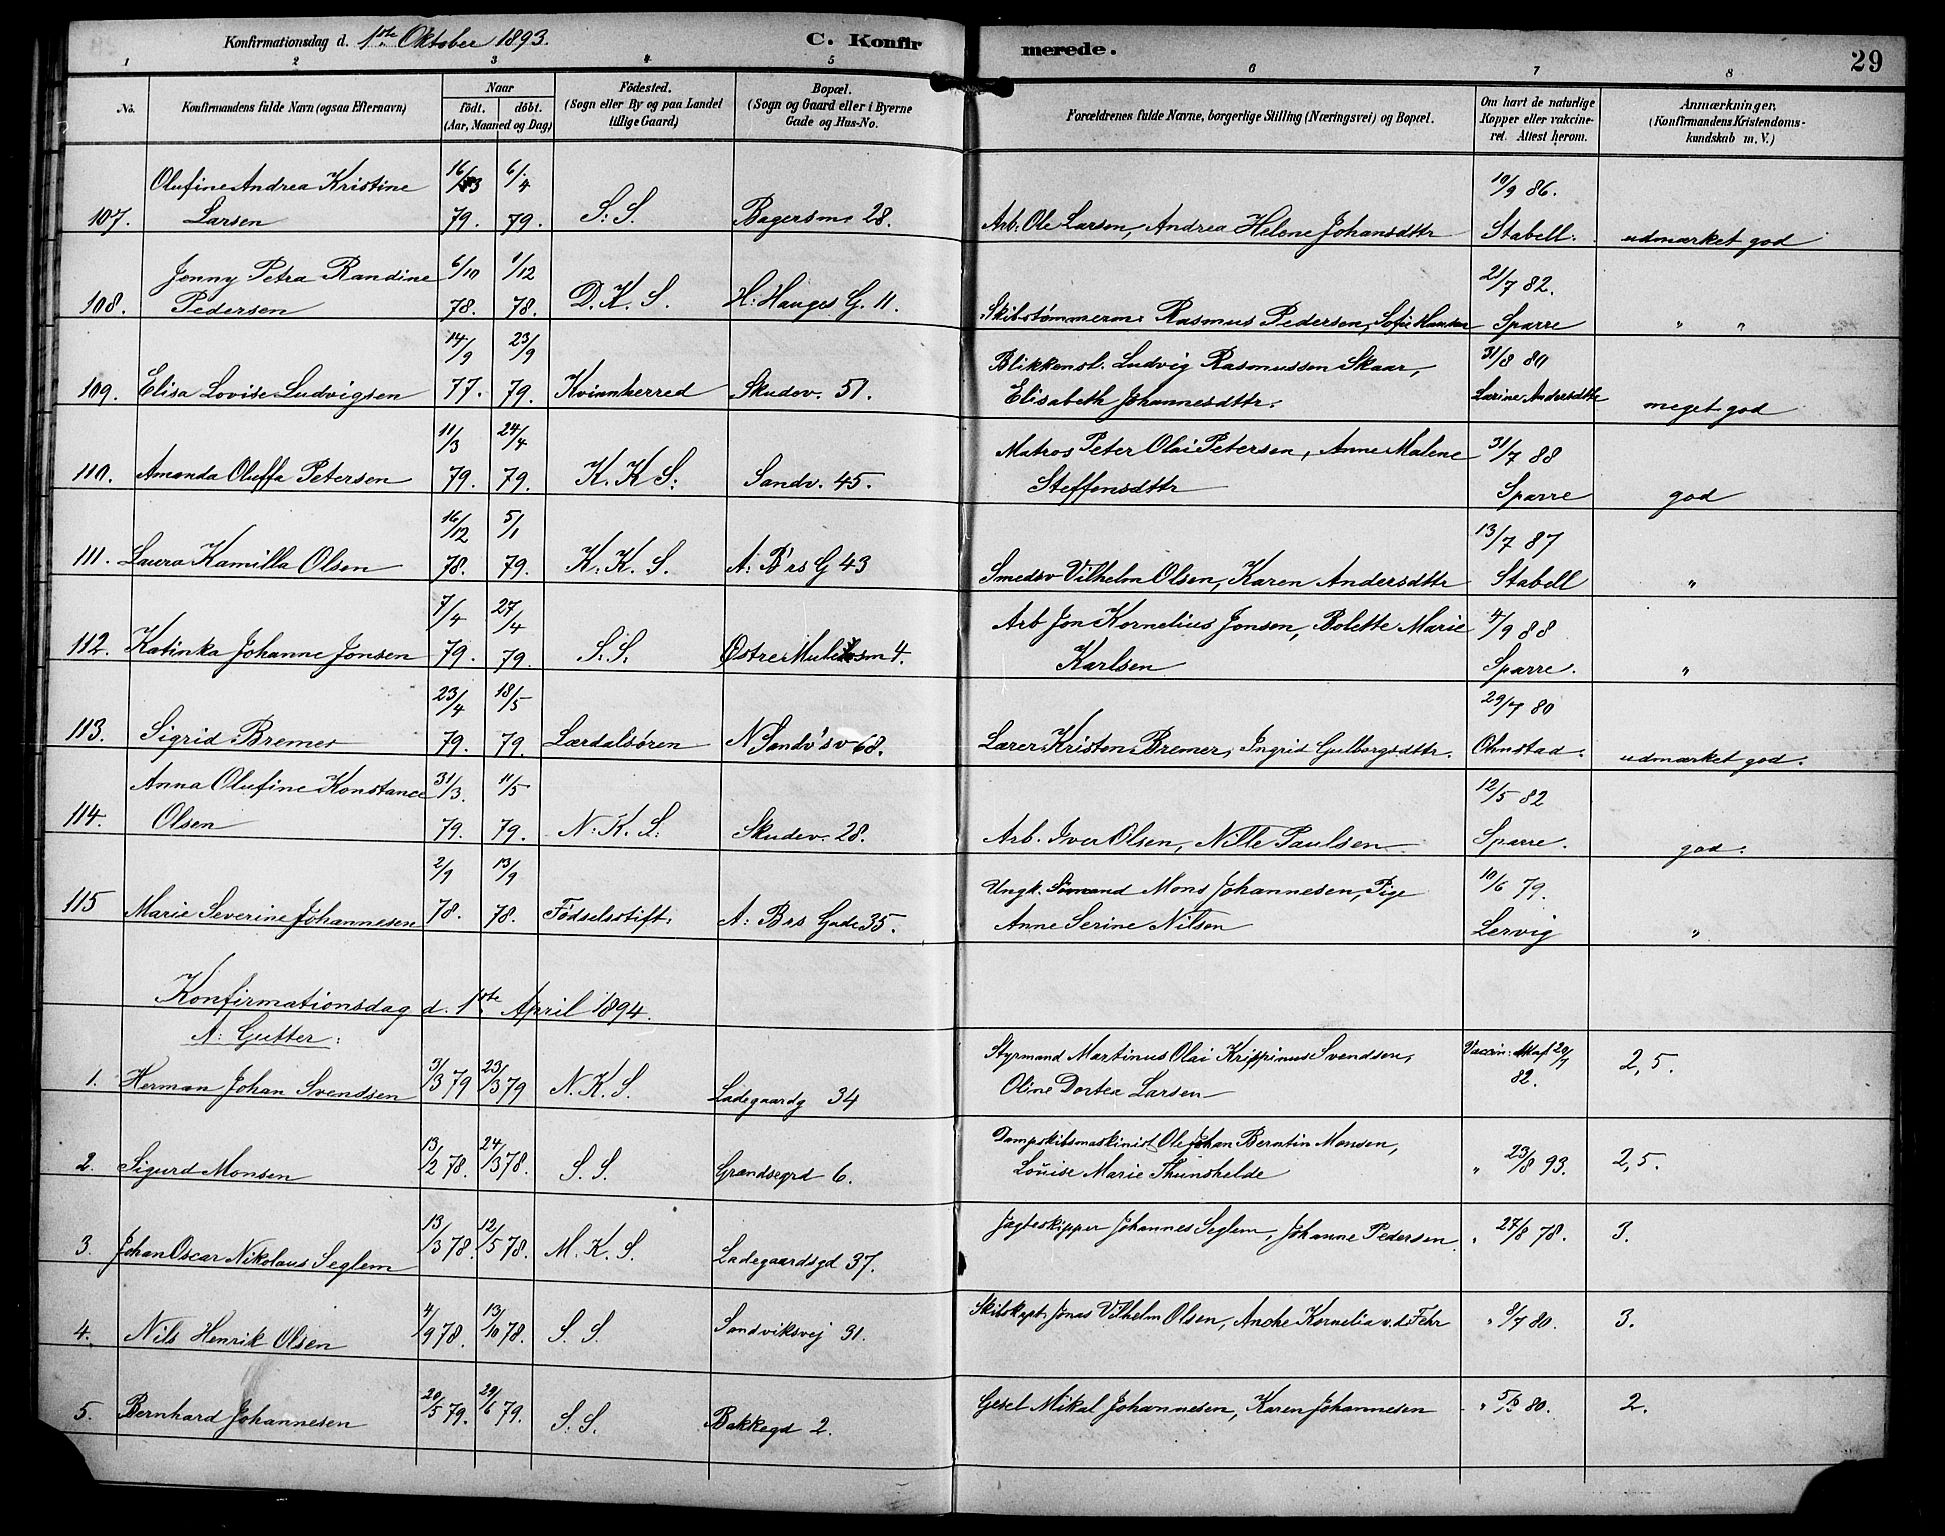 Konfirmationsdag d. 1ste Oktober 1893. C. Konfirmerede. 29
1 2 3 4 5 6 7 8
No. Konfirmandens fulde Navn (ogsaa Efternavn) Naar født. døbt. (Aar, Maaned og Dag) Fødested. (Sogn eller By og paa Landet tillige Gaard) Bopæl. (Sogn og Gaard eller i Byerne Gade og Hus-No. Forældrenes fulde Navne, borgerlige Stilling (Næringsvei) og Bopæl. Om havt de naturlige Kopper eller vakcineret. Attest herom. Anmærkninger. (Konfirmandens Kristendomskundskab m. V.)
107. Olufine Andrea Kristine Larsen 16/3 79. 6/4 79. S. S. Bagersm. 28. Arb. Ole Larsen, Andrea Helene Johansdttr 10/9 86. Stabell. udmærket god
108. Jenny Petra Randine Pedersen 6/10 78. 1/12 78. D. K. S. H. Hauges G. 11. Skibstømmerm. Rasmus Pedersen, Sofie Hansen 21/7 82. Sparre " "
109. Elisa Lovise Ludvigsen 14/9 77. 23/9 79. Kvinnherred Skudev. 51. Blikkensl. Ludvig Rasmussen Skaar, Elisabeth Johannesdttr. 31/8 80 Larine Andersdttr meget god
110. Amanda Oluffa Petersen 11/3 79. 24/4 79. K. K. S. Sandv. 45. Matros Peter Olai Petersen, Anne Malene Steffensdttr 31/7 88 Sparre god
111. Laura Kamilla Olsen 16/12 78. 5/1 79. K. K. S. A. B's G 43 Smedsv Vilhelm Olsen, Karen Andersdttr 13/7 87 Stabell "
112. Katinka Johanne Jonsen 7/4 79. 27/4 79. S. S. Østre Mulesm 4. Arb Jon Kornelius Jonsen, Bolette Marie Karlsen 4/9 88 Sparre. "
113. Sigrid Bremer 23/4 79. 18/5 79. Lærdalsøren N Sandv's v 68. Lærer Kristen Bremer, Ingrid Gulborgsdttr. 29/7 80 Ohnstad. udmærket god.
114. Anna Olufine Konstance Olsen 31/3 79. 11/5 79. N. K. S. Skudev. 28. Arb. Iver Olsen, Nille Paulsen 12/5 82 Sparre. god.
115 Marie Severine Johannesen 2/9 78. 13/9 78. Fødselsstift. A. Brs Gade 35. Ungk. Sømand Mons Johannesen, Pige Anne Serine Nilsen 10/6 79. Lervig "
Konfirmationsdag d. 1ste April 1894.
A. Gutter:
1. Herman Johan Svendsen 3/3 79 23/3 79 N. K. S. Ladegaardg 34 Styrmand Martinus Olai Krippinus Svendsen, Oline Dortea Larsen Vaccin: 20/7 82. 2,5.
2. Sigurd Monsen 13/2 78. 24/3 78. S. S. Grændsegrd 6. Dampskibsmaskinist Ole Johan Berntin Monsen, Louise Marie Thunshelde " 23/8 93. 2,5.
3. Johan Oscar Nikolaus Seglem 13/3 78. 12/5 78. M. K. S. Ladegaardsgd 37. Jagteskipper Johannes Seglem, Johanne Pedersen " 27/8 78. 3.
4. Nils Henrik Olsen 4/9 78. 13/10 78. S. S. Sandviksvej 91. Skibskapt. Jonas Vilhelm Olsen, Anche Kornelia v. d. Fehr " 9/7 80. 3.
5. Bernhard Johannesen 20/5 79. 29/6 79. S. S. Bakkegd 2. Gesel Mikal Johannesen, Karen Johannesen " 5/5 80. 2.